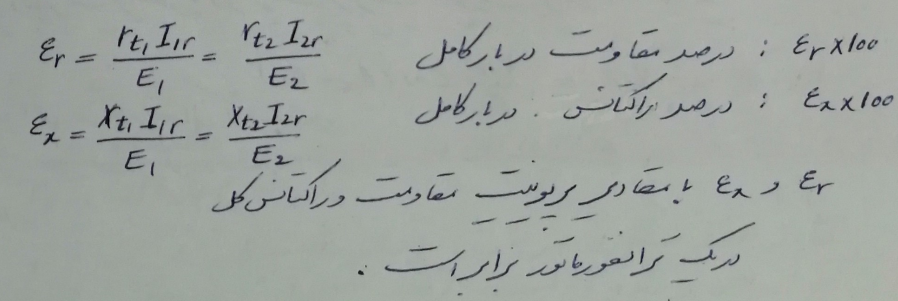 εr = rt1 I1r / E1 = rt2 I2r / E2    εr×100 : درصد مقاومت در بار کامل
εx = Xt1 I1r / E1 = Xt2 I2r / E2    εx×100 : درصد راکتانس . در بار کامل
εr و εx با مقادیر پریونیت مقاومت و راکتانس کل
در یک ترانسفورماتور برابر است .